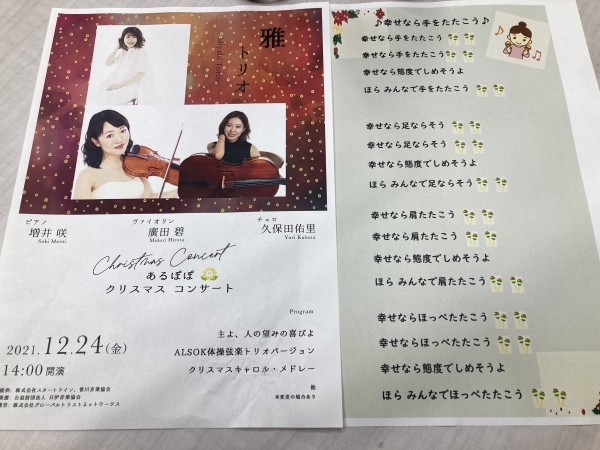 雅
トリオ
ピアノ
増井 咲
Saki Masui
ヴァイオリン
廣田 碧
Midori Hirota
チェロ
久保田佑里
Yuri Kubota
Christmas Concert
あるぽぽ
クリスマス コンサート
Program
主よ、人の望みの喜びよ
ALSOK体操弦楽トリオバージョン
クリスマスキャロル・メドレー
他
※変更の場合あり
2021. 12.24(金)
14:00開演
株式会社スタートライン、
公益財団法人 日伊音楽協会
株式会社グローバルトラストネットワークス
♪幸せなら手をたたこう♪
幸せなら手をたたこう
幸せなら手をたたこう
幸せなら態度でしめそうよ
ほら みんなで手をたたこう
幸せなら足ならそう
幸せなら足ならそう
幸せなら態度でしめそうよ
ほら みんなで足ならそう
幸せなら肩たたこう
幸せなら肩たたこう
幸せなら態度でしめそうよ
ほら みんなで肩たたこう
幸せならほっぺたたこう
幸せならほっぺたたこう
幸せなら態度でしめそうよ
ほら みんなでほっぺたたこう